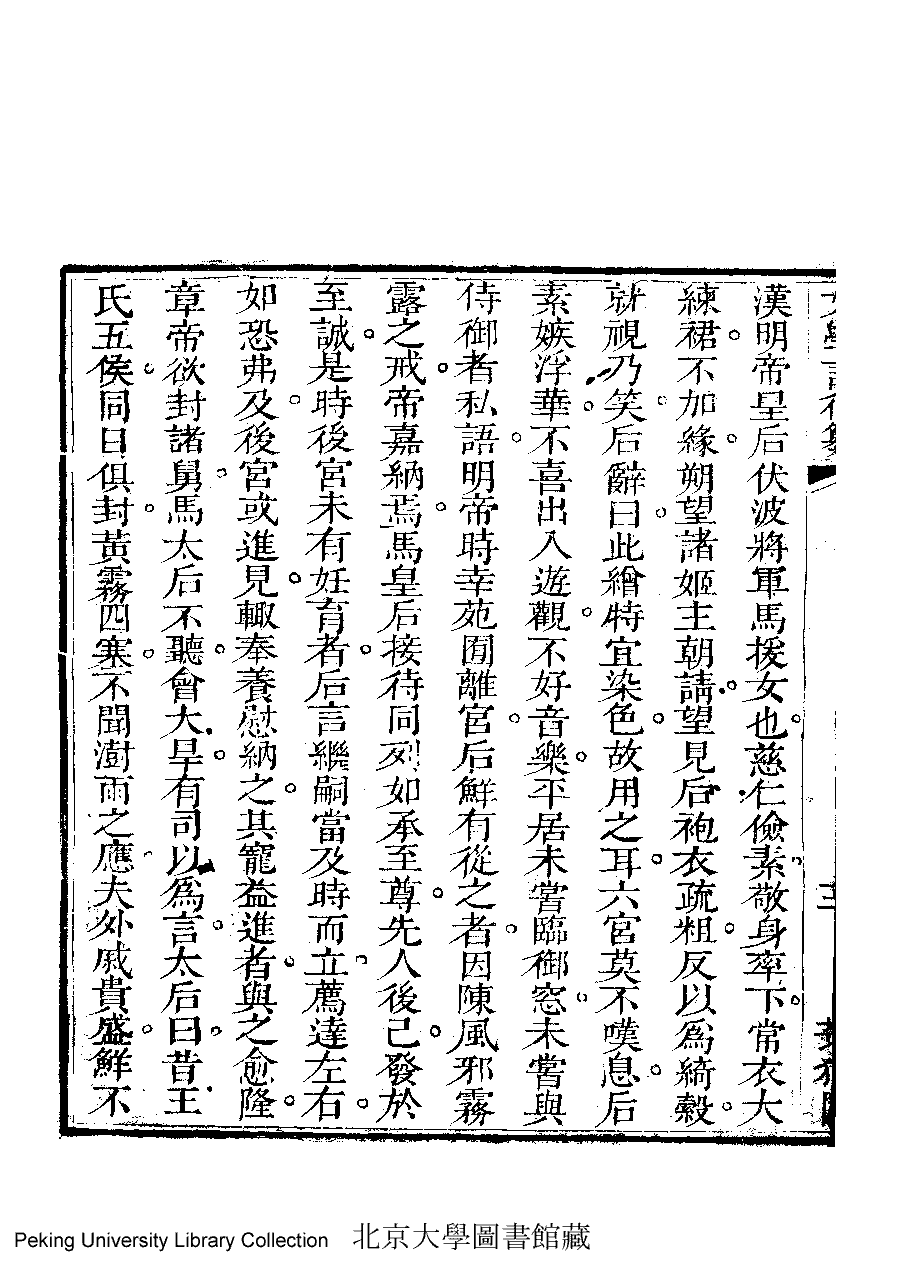 漢明帝皇后伏波將軍馬援女也。慈仁儉素。敬身率下。常衣大
練裙。不加緣。朔望諸姬主朝請。望見后袍衣疏粗。反以為綺縠。
就視乃笑。后辭曰。此繒特宜染色。故用之耳。六宮莫不嘆息。后
素嫉浮華。不喜出入遊觀。不好音樂。平居未嘗臨御窓。未嘗與
侍御者私語。明帝時幸苑囿離宮。后鮮有從之者。因陳風邪霧
露之戒。帝嘉納焉。馬皇后接待同列。如承至尊。先人後己。發於
至誠。是時後宮未有妊育者。后言繼嗣當及時而立。薦達左右。
如恐弗及。後宮或進見。輙奉養慰納之。其寵益進者。與之愈隆。
章帝欲封諸舅。馬太后不聽。會大旱。有司以為言。太后曰。昔王
氏五侯。同日俱封。黃霧四塞。不聞澍雨之應。夫外戚貴盛。鮮不
三
Peking University Library Collection 北京大學圖書館藏